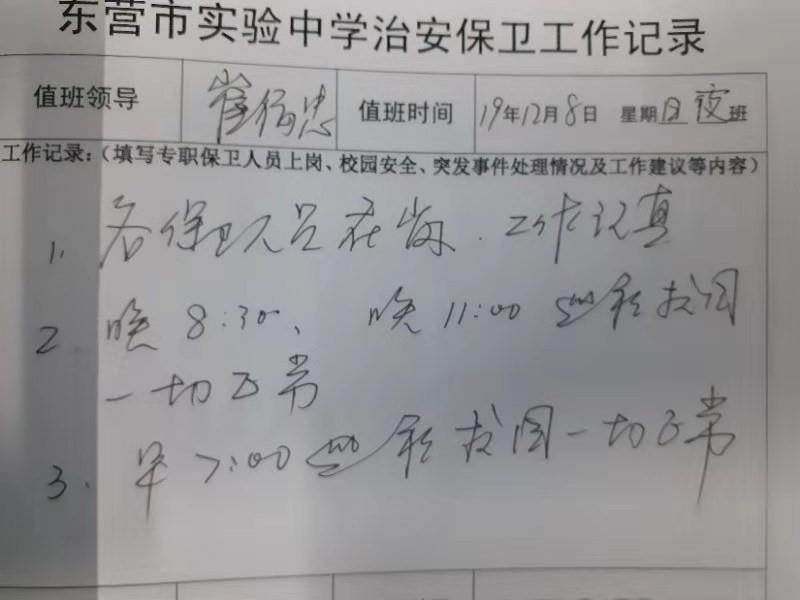 东营市实验中学治安保卫工作记录
值班领导 崔 忠 值班时间 19年12月8日 星期日夜班
工作记录:(填写专职保卫人员上岗、校园安全、突发事件处理情况及工作建议等内容)
1. 各保卫人员在岗.工作认真
2 晚8:30、 晚11:00 巡视校园
一切正常
3. 早7:00巡视校园一切正常